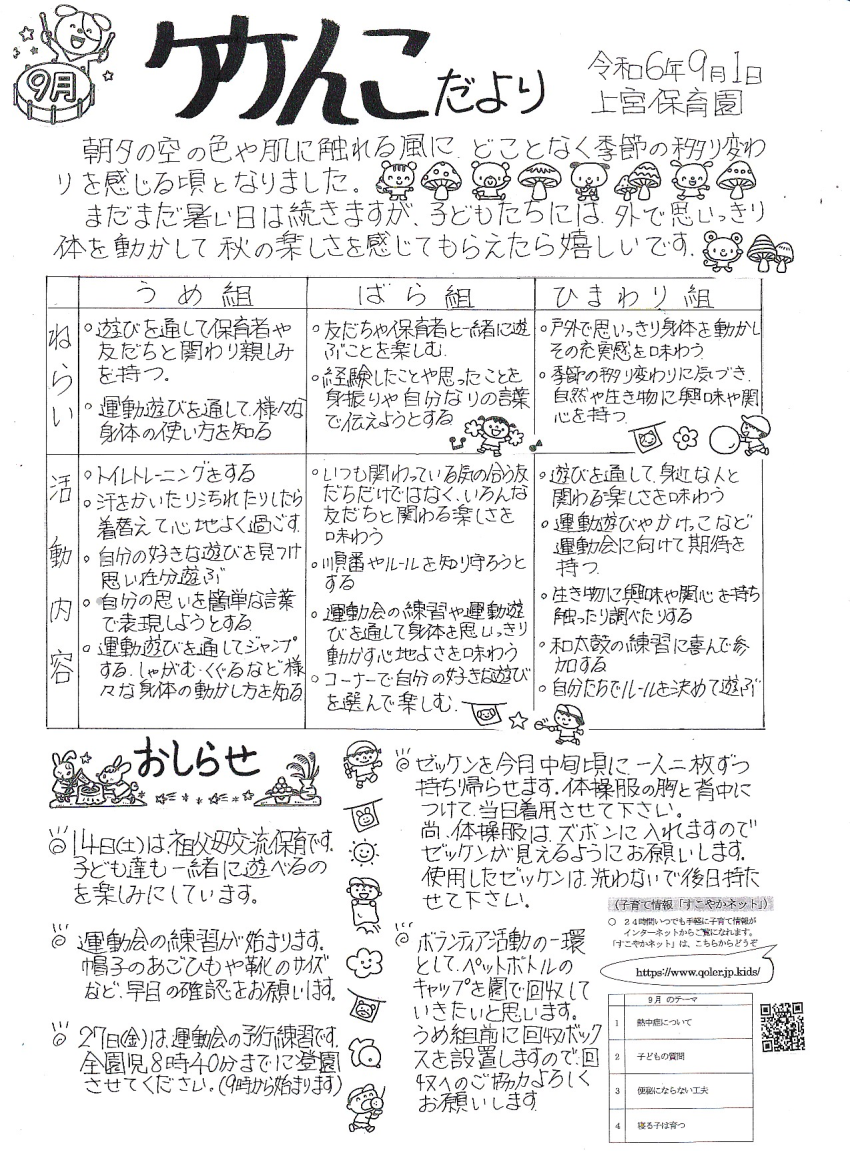 9月
ケケんこだより
令和6年9月1日
上宮保育園
朝夕の空の色や肌に触れる風に、どことなく季節の移り変わ
りを感じる頃となりました。
まだまだ暑い日は続きますが、子どもたちには、外で思いっきり
体を動かして秋の楽しさを感じてもらえたら嬉しいです。
うめ組
ばら組
ひまわり組
ねらい
○遊びを通して保育者や
友だちと関わり親しみ
を持つ。
○運動遊びを通して、様々な
身体の使い方を知る
○友だちや保育者と一緒に遊
ぶことを楽しむ。
○経験したことや思ったことを
身振りや自分なりの言葉
で伝えようとする
○戸外で思いっきり身体を動かし
その充実感を味わう
○季節の移り変わりに気づき、
自然や生き物に興味や関
心を持つ
活動内容
○トイレトレーニングをする
○汗をかいたり汚れたりしたら
着替えて心地よく過ごす
○自分の好きな遊びを見つけ
思い存分遊ぶ
○自分の思いを簡単な言葉
で表現しようとする
○運動遊びを通してジャンプ
する、しゃがむ・くぐるなど様
々な身体の動かし方を知る
○いつも関わっている気の合う友
だちだけではなく、いろんな
友だちと関わる楽しさを
味わう
○順番やルールを知り守ろうと
する
○運動会の練習や運動遊
びを通して身体を思いっきり
動かす心地よさを味わう
○コーナーで自分の好きな遊び
を選んで楽しむ。
○遊びを通して、身近な人と
関わる楽しさを味わう
○運動遊びやかけっこなど
運動会に向けて期待を
持つ
○生き物に興味や関心を持ち
触ったり調べたりする
○和太鼓の練習に喜んで参
加する
○自分たちでルールを決めて遊ぶ
おしらせ
◎14日(土)は祖父母交流保育です。
子ども達も一緒に遊べるの
を楽しみにしています。
◎運動会の練習が始まります。
帽子のあごひもや靴のサイズ
など、早目の確認をお願いします。
◎27日(金)は、運動会の予行練習です。
全園児8時40分までに登園
させてください。(9時から始まります)
◎ゼッケンを今月中旬頃に、一人二枚ずつ
持ち帰らせます。体操服の胸と背中に
つけて、当日着用させて下さい。
尚、体操服は、ズボンに入れますので
ゼッケンが見えるようにお願いします。
使用したゼッケンは、洗わないで後日持た
せて下さい。
◎ボランティア活動の一環
として、ペットボトルの
キャップを園で回収して
いきたいと思います。
うめ組前に回収ボック
スを設置しますので、回
収へのご協力よろしく
お願いします。
(子育て情報「すこやかネット」)
○ 24時間いつでも手軽に子育て情報が
インターネットからご覧になれます。
「すこやかネット」は、こちらからどうぞ
https://www.qoler.jp.kids/
9月 のテーマ
1 熱中症について
2 子どもの質問
3 便秘にならない工夫
4 寝る子は育つ